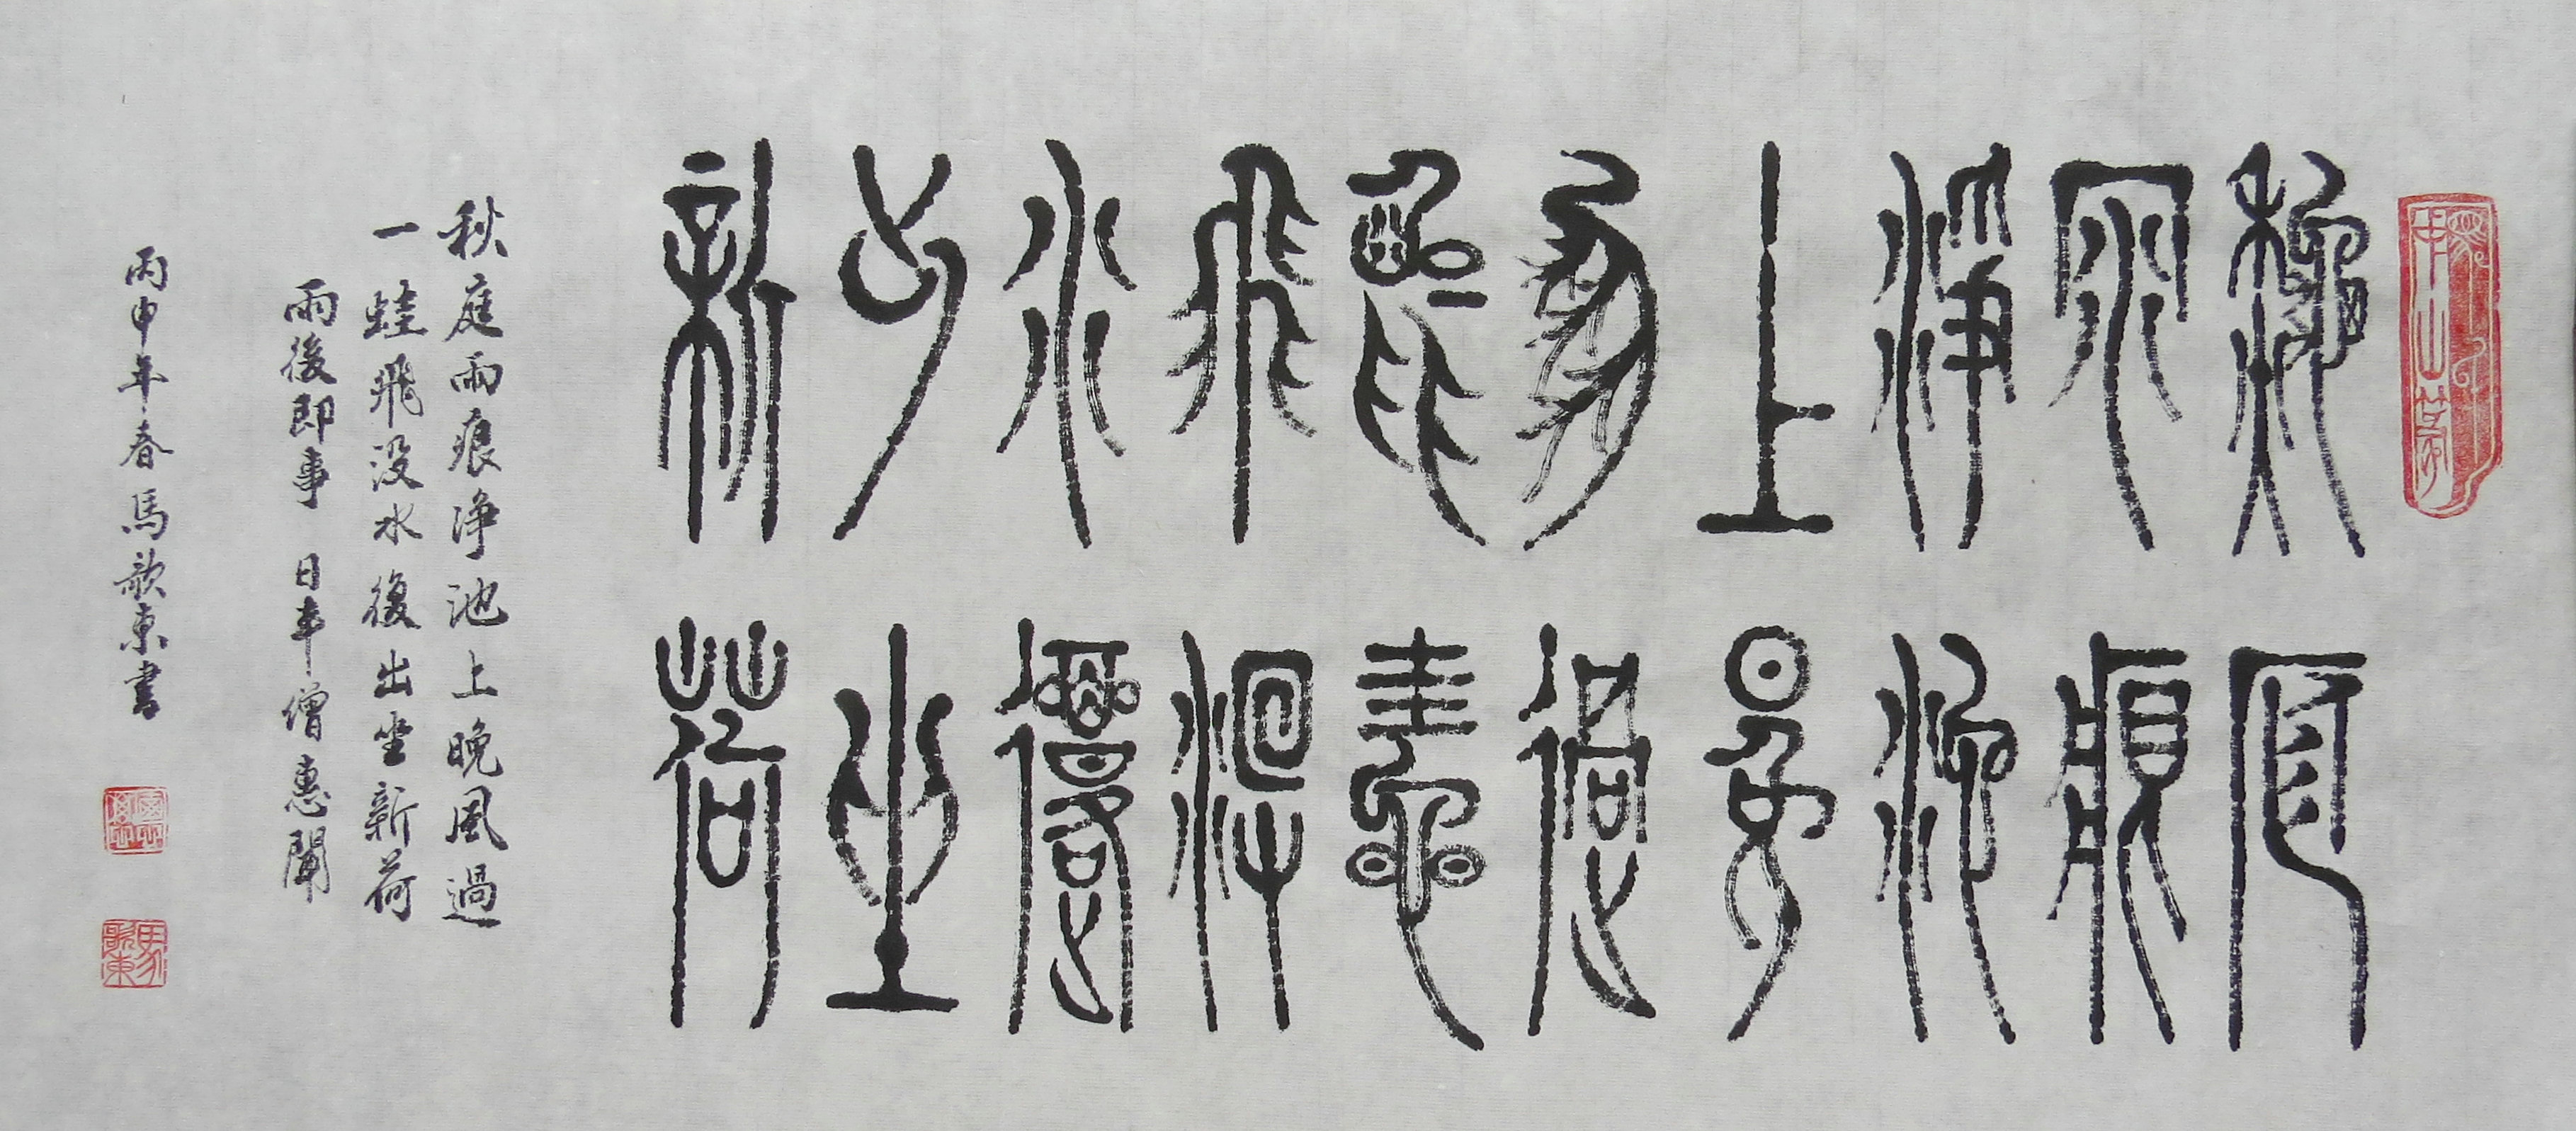 秋庭
雨痕
淨池
上晚
風過
一蛙
飛没
水復
出坐
新荷
秋庭雨痕净池上晚風過
一蛙飛没水復出坐新荷
雨後即事 日本僧惠聞
丙申年春馬歌東書
馬歌東